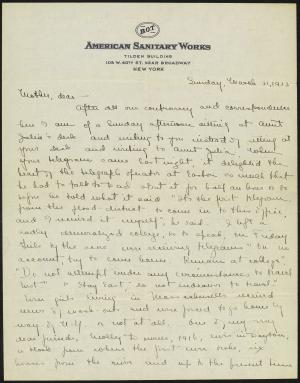 BOT
AMERICAN SANITARY WORKS
TILDEN BUILDING
105 W. 40TH ST. NEAR BROADWAY
NEW YORK
Sunday, March 31, 1913
Mother, dear —
After all our controversy and correspondence
here I am of a Sunday afternoon sitting at Aunt
Julia's desk and writing to you instead of sitting at
your desk and writing to Aunt Julia. When
your telegram came last night, it delighted the
heart of the telegraph operator at so much that
he had to talk to about it for half an hour or so
before he told what it said. "It's the first telegram
from the flood district to come in to this office,
and I received it myself," he said. I left a
sadly demoralized college, so to speak, on Friday
girls of the were receiving telegrams "On no
account try to come home. Remain at college."
"Do not attempt under any circumstances to travel
" "Stay East, do not endeavor to travel."
Two girls living in Massachusetts received
news of and were forced to go home by
way of N.Y. or not at all. One of my very
dear friends, Molly, 1916, lives in Dayton,
a block from where the first broke, six
houses from the river and up to the present time